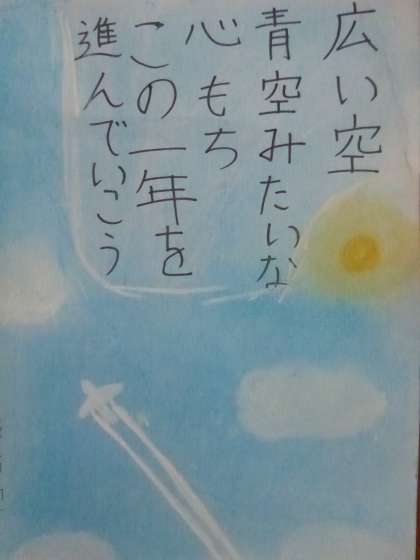 広い空
青空みたいな
心もち
この一年を
進んでいこう